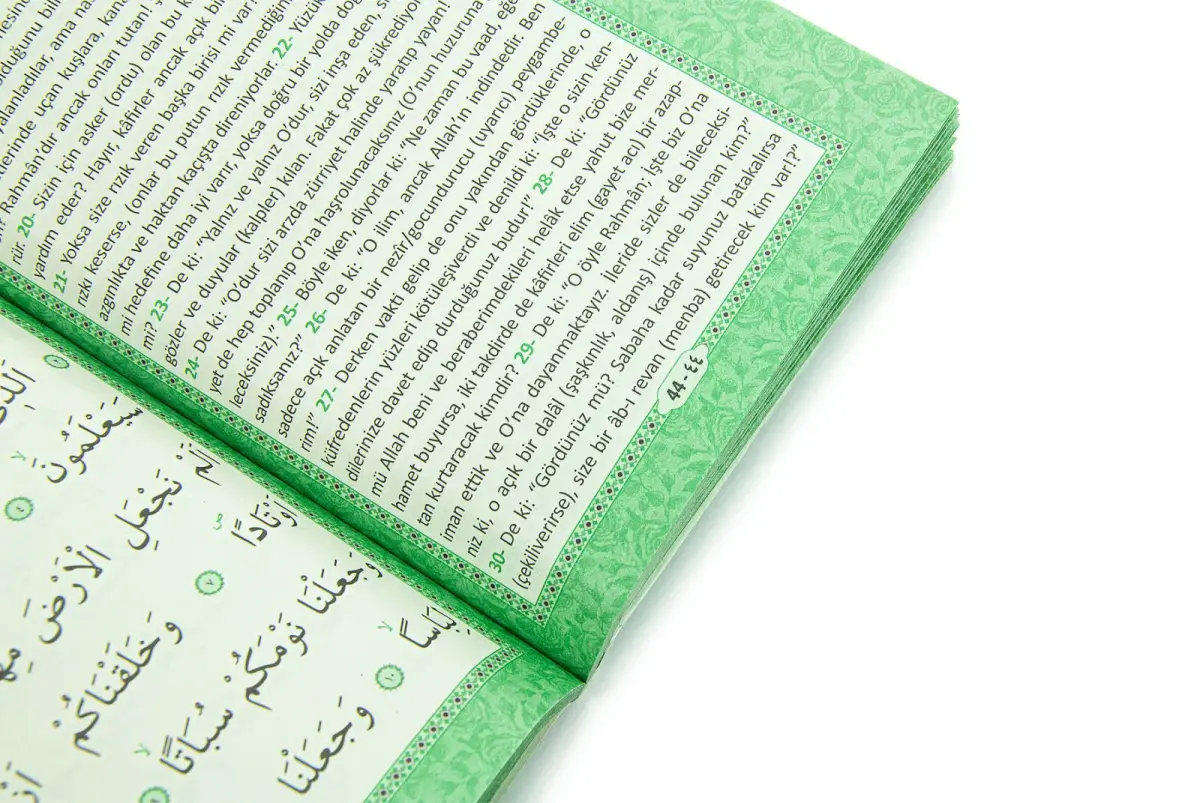 rür 20- Sizin için asker (ordu) olan bu
yardım eder? Hayır, kâfirler ancak açık bir
21- Yoksa size rızık veren başka birisi mi var
rızkı keserse, (onlar bu putun rızık vermediğin
azgınlıkta ve haktan kaçışta direniyorlar. 22- Yüzük
mı hedefine daha iyi varır, yoksa doğru bir yolda doğ
mi? 23- De ki: “Yalnız ve yalnız O’dur, sizi inşa eden, si
gözler ve duyular (kalpler) kılan. Fakat çok az şükrediyor
24- De ki: “O’dur sizi arzda zürriyet halinde yaratıp yayan!
yet de hep toplanıp O’na haşrolunacaksınız (O’nun huzuruna
leceksiniz).” 25- Böyle iken, diyorlar ki: “Ne zaman bu vaad, eğe
sadıksanız?” 26- De ki: “O ilim, ancak Allah’ın indindedir. Ben
sadece açık anlatan bir nezîr/gocundurucu (uyarıcı) peygambe-
rim!” 27- Derken vakti gelip de onu yakından gördüklerinde, o
küfredenlerin yüzleri kötüleşiverdi ve denildi ki: “İşte o sizin ken-
dilerinize davet edip durduğunuz budur!” 28- De ki: “Gördünüz
mü Allah beni ve beraberimdekileri helâk etse yahut bize mer-
hamet buyursa, iki takdirde de kâfirleri elîm (gayet acı) bir azap-
tan kurtaracak kimdir? 29- De ki: “O öyle Rahmân; işte biz O’na
iman ettik ve O’na dayanmaktayız. İleride sizler de bileceksi-
niz ki, o açık bir dalâl (şaşkınlık, aldanış) içinde bulunan kim?”
30- De ki: “Gördünüz mü? Sabaha kadar suyunuz batakalırsa
(çekiliverirse), size bir âb-ı revan (menba) getirecek kim var!?”
44 - ٤٤
سَيَعْلَمُونَۙ ٤
نَجْعَلِ الْاَرْضَ
٧ وَخَلَقْنَاكُمْ
وَجَعَلْنَا نَوْمَكُمْ سُبَاتًاۙ ٩
١٠ وَجَعَلْنَا